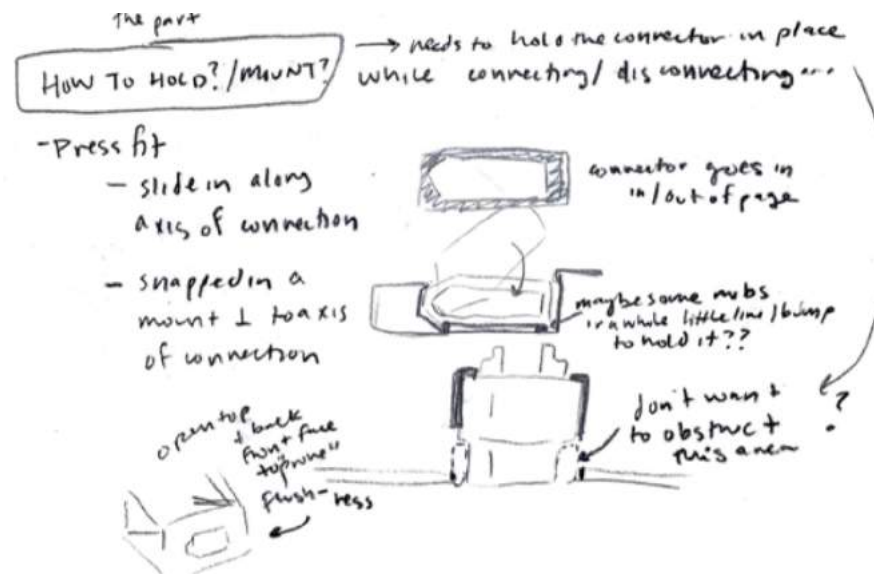 The part
HOW TO HOLD?/MOUNT?
→ needs to hold the connector in place
while connecting/disconnecting...
- Press fit
- slide in along
axis of connection
- snapped in a
mount ⊥ to axis
of connection
connector goes in
in/out of page
maybe some nubs
or a whole little line/bump
to hold it??
don't want
to obstruct
this area
?
open top
+ back
front face
flush-ness